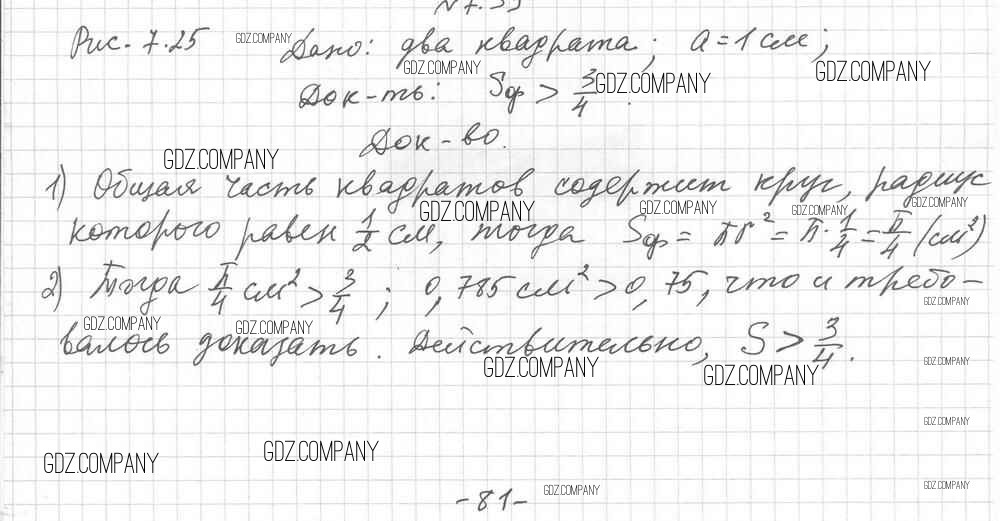 N 7.33
Рис. 7.25 GDZ.COMPANY Дано: два квадрата; a = 1 см;
GDZ.COMPANY GDZ.COMPANY GDZ.COMPANY
Док-ть: Sф > 3/4.
Док-во.
GDZ.COMPANY
1) Общая часть квадратов содержит круг, радиус
GDZ.COMPANY GDZ.COMPANY GDZ.COMPANY GDZ.COMPANY
которого равен 1/2 см, тогда Sф = πr² = π · 1/4 = π/4 (см²)
2) Тогда π/4 см² > 3/4 ; 0,785 см² > 0,75, что и требо-
GDZ.COMPANY GDZ.COMPANY GDZ.COMPANY
валось доказать. Действительно, S > 3/4.
GDZ.COMPANY GDZ.COMPANY GDZ.COMPANY
GDZ.COMPANY
GDZ.COMPANY GDZ.COMPANY
-81- GDZ.COMPANY GDZ.COMPANY